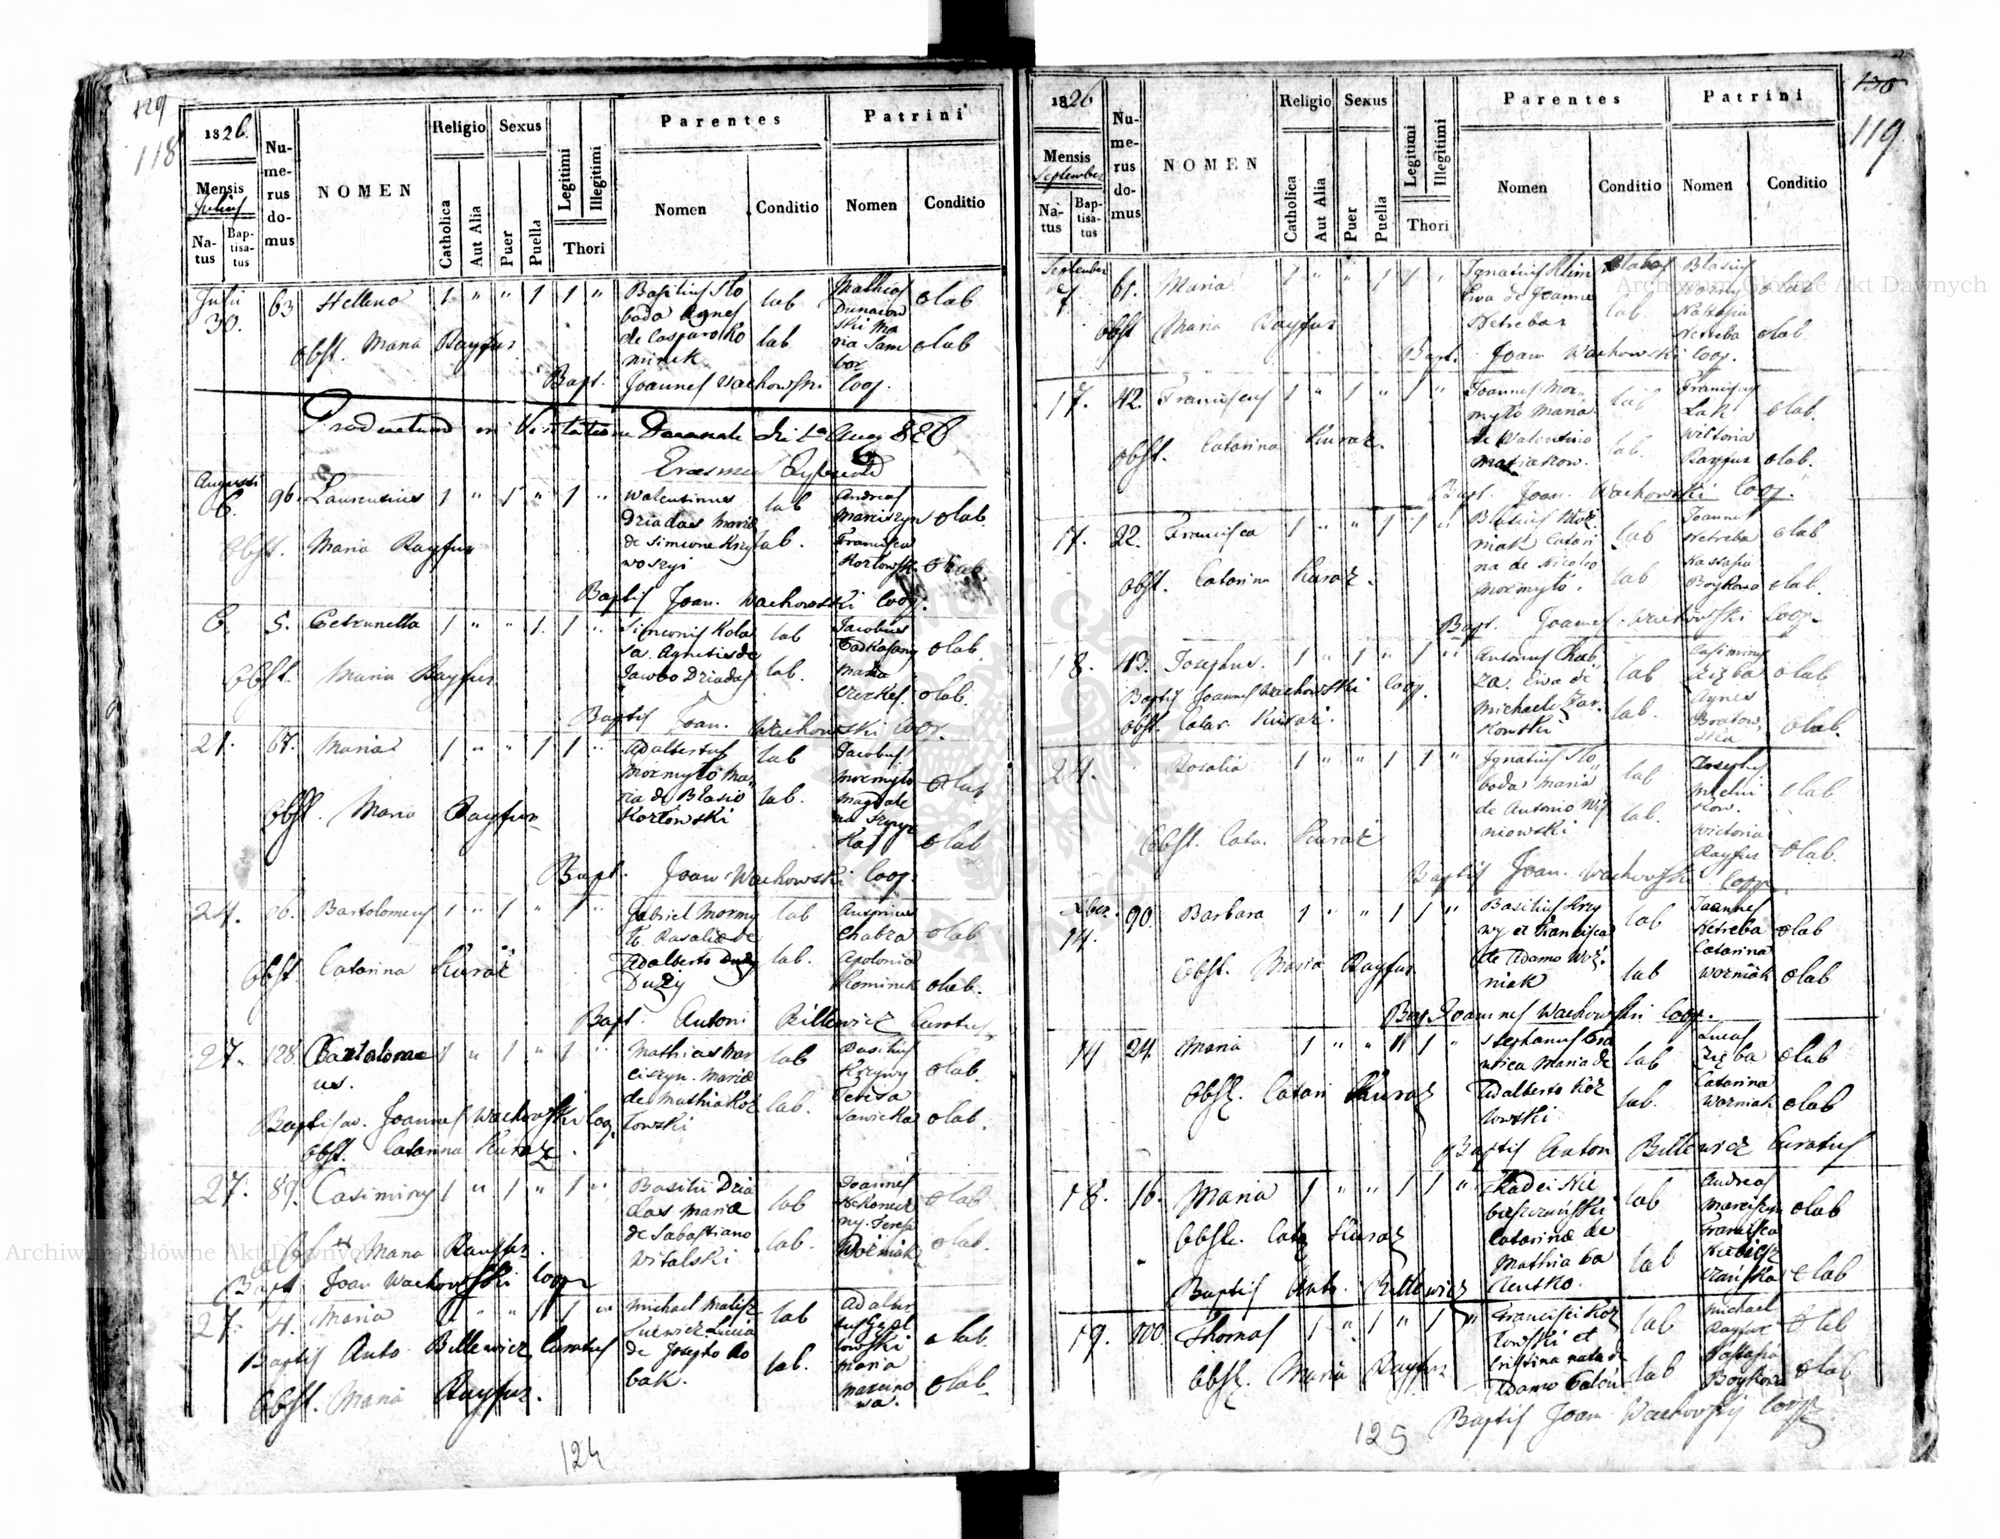 129
118
1826.
Mensis
Julius
Natus
Baptisatus
Numerus domus
NOMEN
Religio
Catholica
Aut Alia
Sexus
Puer
Puella
Legitimi
Illegitimi
Thori
Parentes
Nomen
Conditio
Patrini
Nomen
Conditio
Julii
30.
63
Hellena
1 " " 1 1 "
Basilius Slo
boda Agnes
de Casparo Ko
minek
lab
lab
Mathias
Dunaiow
ski Ma
ria Sam
bor
olab
olab
Obst. Maria Rayfur
Bapt. Joannes Wachowski Coop.
Productum in Visitatione Decanali
Augusti
6.
96.
Laurentius
1 " 1 " 1 "
Walentinus
Dziadas Maria
de Simeone Krzy
woszyi
lab
lab.
Andreas
Marciszyn
Francisca
Kozłowsk.
olab.
olab
Obst. Maria Rayfur
Baptis Joan. Wachowski Coop.
6.
5.
Petrunella
1 " " 1. 1 "
Simeonis Kola
sa. Agnetis de
Jacobo Dziadas
lab
lab.
Jacobus
Maria
olab.
olab.
Obst. Maria Rayfur
Baptis Joan. Wachowski Coop.
21.
67.
Maria
1 " " 1 1 "
Adalbertus
Mormyło Ma
ria de Blasio
Kozłowski
lab
lab.
Jacobus
Mormyło
Magdale
na
olab
olab
Obst. Maria Rayfur
Bapt. Joan Wachowski Coop.
24.
Bartolomeus
1 " 1 " 1 "
Gabriel Mormy
ło. Rosalia de
Adalberto Duży
Duży
lab
lab.
Antonius
Chabza
Apolonia
Kominek
olab
olab.
Obst. Catarina Kuraż
Bapt. Antoni Billewicz Curatus
27.
128.
Bartolomae
us.
1 " 1 " 1 "
Mathias Mar
ciszyn. Maria
de Mathia Koz
łowski
lab
lab.
Basilius
Krzywy
Teresa
Sawicka
olab.
olab.
Baptisav. Joannes Wachowski Coop.
Obst. Catarina Kuraż.
27.
89.
Casimirus
1 " 1 " 1 "
Basilii Dzia
das Maria
de Sabastiano
Witalski
lab
lab.
Joannes
ny. Teresa
Woźniak
olab
olab.
Obst Maria Rayfur.
Bapt. Joan Wachowski Coop
27.
4.
Maria
1 " " 1 1 "
Michael Malisz
Lucia
de Josepho Ro
bak.
lab
lab.
Adalber
tus
Maria
Marcino
wa.
olab.
olab.
Baptis Anto. Billewicz Curatus
Obst. Maria Rayfur.
124
130
119
1826
Mensis
September
Natus
Baptisatus
Numerus domus
NOMEN
Religio
Catholica
Aut Alia
Sexus
Puer
Puella
Legitimi
Illegitimi
Thori
Parentes
Nomen
Conditio
Patrini
Nomen
Conditio
September
7
61.
Maria
1 " " 1 1 "
Ignatius Klim
Ewa de Joanne
Netrebar
lab.
Blasius
Netreba
olab
olab.
Obst Maria Rayfur
Bapt. Joan Wachowski Coop.
17.
42.
Franciscus
1 " 1 " 1 "
Joannes Mor
myło Maria
de Walentino
Maziakow.
lab
lab.
Franciscus
Lak
Wiktoria
Rayfur
olab.
olab.
Obst. Catarina Kuraż.
Bapt. Joan. Wachowski Coop.
17.
22.
Francisca
1 " " 1 1 "
Blasius Woź
niak Catari
na de Nicolao
Mormyło.
lab
lab
Joannes
Netreba
Nastasia
Boykowa
olab
olab.
Obst. Catarina Kuraż.
Bapt. Joannes Wachowski Coop.
18.
43.
Josephus.
1 " 1 " 1 "
Antonius Chab
za. Ewa de
Michaele Żar
kowski
lab
lab.
Casimirus
Zięba
Agnes
Bratow
ska
olab
olab.
Baptis Joannes Wachowski Coop.
Obst. Catar. Kuraż.
24.
Rosalia
1 " " 1 1 "
Ignatius Slo
boda Maria
de Antonio Wiś
niowski
lab
lab.
Josephus
Wictoria
Rayfur
olab
olab.
Obst. Cata. Kuraż
Baptis Joan. Wachowski Coop.
14.
90.
Barbara
1 " " 1 1 "
Basilius Krzy
wy et Francisca
de Adamo Woź
niak
lab
lab
Joannes
Netreba
Catarina
Wozniak
olab
olab
Obst. Maria Rayfur
Bap. Joannes Wachowski Coop.
14
24.
Maria
1 " " 1 1 "
Stephanus
Maria de
Adalberto Koz
łowski
lab
lab.
Lucas
Zięba
Catarina
Wozniak
olab
olab
Obst. Catari Kuraż
Baptis Antoni Billewicz Curatus
18.
16.
Maria
1 " " 1 1 "
Thadei Nie
bieszczański
Catarina de
Mathia
lab
lab
Andreas
Marciszyn
Francisca
Niebiesz
czańska
olab
olab
Obst. Cata Kuraż
Baptis Anto. Billewicz
19.
100.
Thomas
1 " 1 " 1 "
Francisci Koz
łowski et
Cristina nata de
Adamo
lab
lab
Michael
Rayfur
Nastasia
Boykowa
olab
olab
Obst. Maria Rayfur
Baptis Joan Wachowski Coop
125
Archiwum Główne Akt Dawnych
Archiwum Główne Akt Dawnych